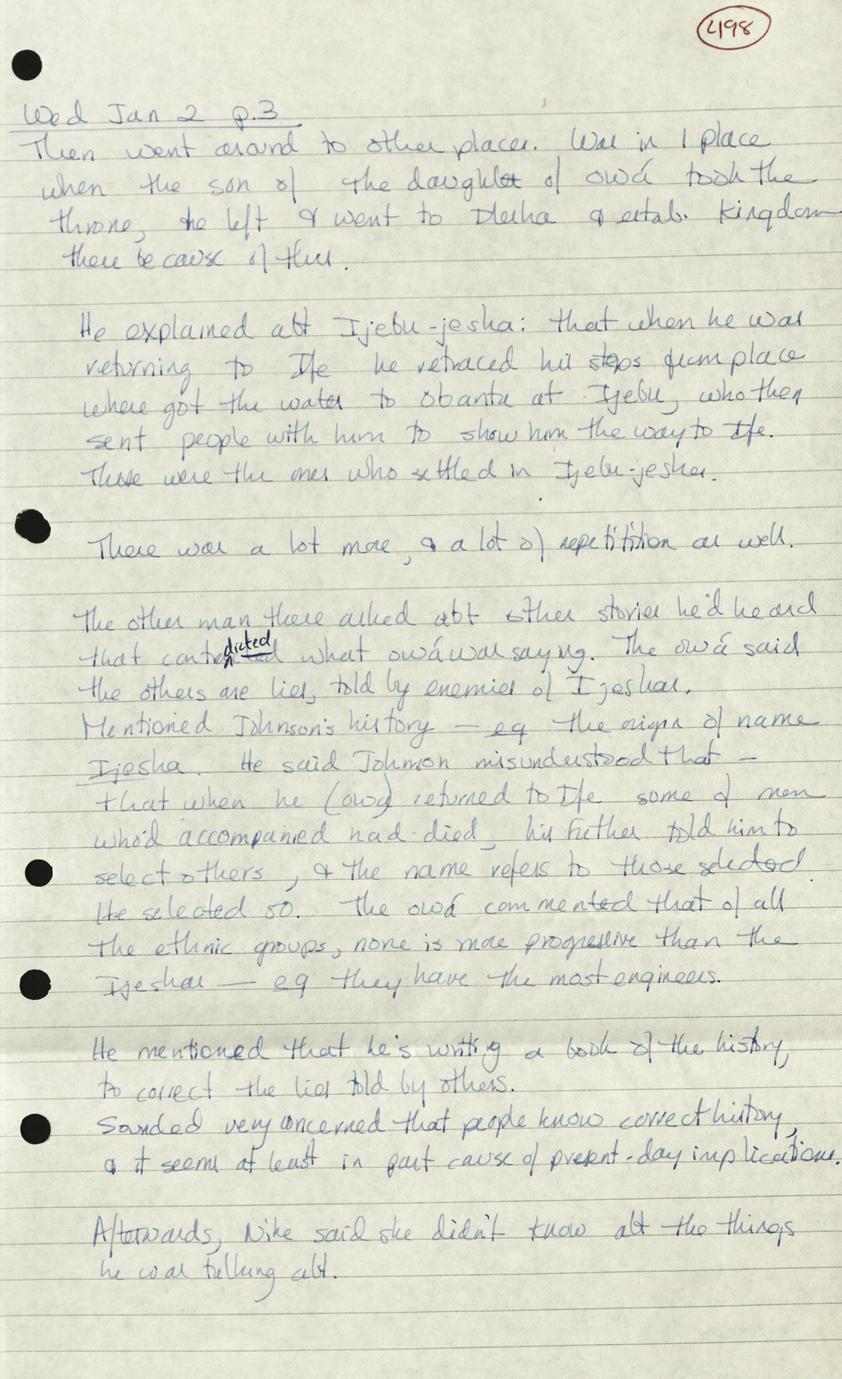 498
Wed Jan 2 p.3
Then went around to other places. Was in 1 place
when the son of the daughter of owá took the
throne, he left & went to Ilesha & estab. kingdom
there because of this.
He explained abt Ijebu-jesha: that when he was
returning to Ife he retraced his steps from place
where got the water to Obanta at Ijebu, who then
sent people with him to show him the way to Ife.
These were the ones who settled in Ijebu-jesha.
There was a lot more, & a lot of repetitition as well.
The other man there asked abt other stories he'd heard
that contradicted what owá was saying. The owá said
the others are lies, told by enemies of Ijeshas.
Mentioned Johnson's history — eg the origin of name
Ijesha. He said Johnson misunderstood that —
that when he (owa) returned to Ife some of men
who'd accompanied had died, his father told him to
select others, & the name refers to those selected
He selected 50. The owá commented that of all
the ethnic groups, none is more progressive than the
Ijeshas — eg they have the most engineers.
He mentioned that he's writing a book of the history,
to correct the lies told by others.
Sounded very concerned that people know correct history,
& it seems at least in part cause of present-day implications.
Afterwards, Nike said she didn't know abt the things
he was talking abt.